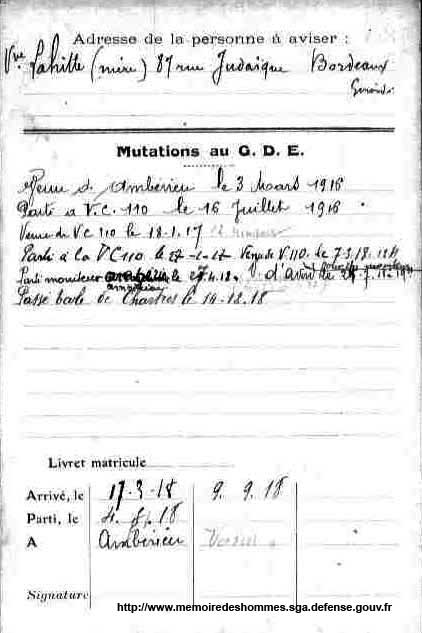 Adresse de la personne à aviser :
Vve Lahitte (mère) 87 rue Judaïque Bordeaux
Gironde
Mutations au G. D. E.
Venu d'Ambérieu le 3 Mars 1916
Parti à V.C. 110 le 16 Juillet 1916
Venu du VC 110 le 18-1-17
Parti à la VC 110 le 27-1-17 Venu de V110. le 7-3-18
Parti moniteur le 27.4.18. V. d'Avord le
Passé base de Chartres le 14-12-18
Livret matricule
Arrivé, le 17-3-18 9. 9. 18
Parti, le 18
A Ambérieu
Signature
http://www.memoiredeshommes.sga.defense.gouv.fr